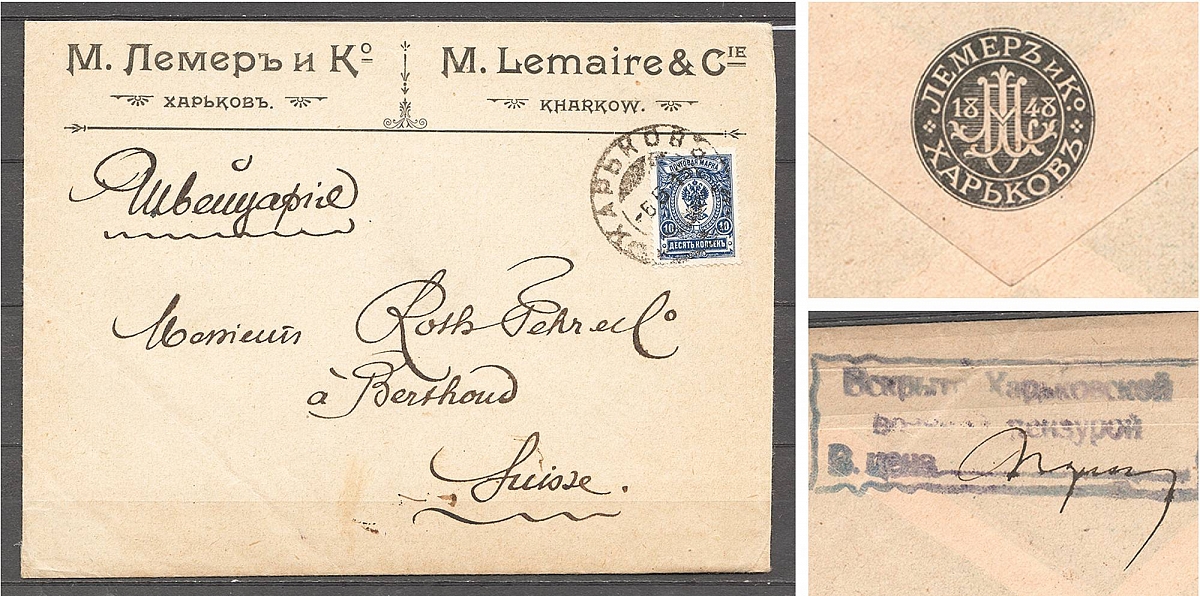 М. Лемеръ и Кº
ХАРЬКОВЪ.
M. Lemaire & CIE
KHARKOW.
ХАРЬКОВЪ
ПОЧТОВАЯ МАРКА
10 10
ДЕСЯТЬ КОПѢЕКЪ
Швейцарiе
Messieurs Roth Fehr & Co
à Berthoud
Suisse.
ЛЕМЕРЪ и Кº
1848
ХАРЬКОВЪ
Вскрыто Харьковской
цензурой
В. цена